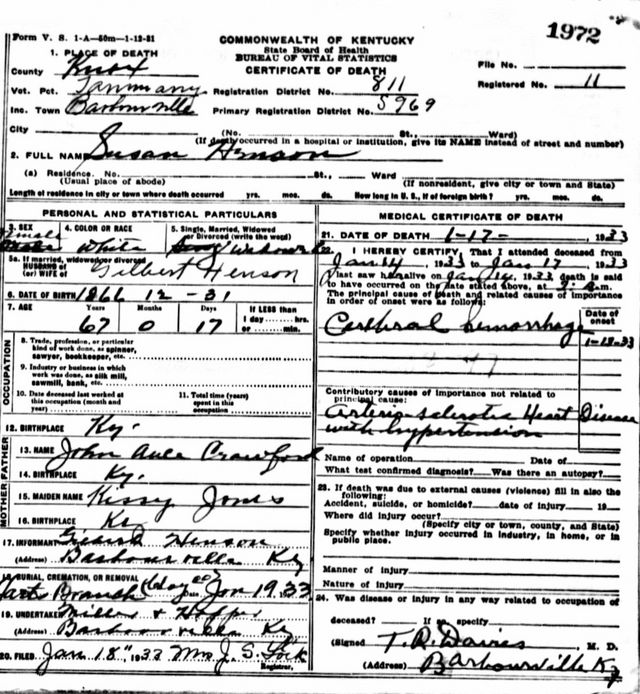 1972
Form V. S. 1-A—50m—1-12-31
COMMONWEALTH OF KENTUCKY
State Board of Health
BUREAU OF VITAL STATISTICS
CERTIFICATE OF DEATH
1. PLACE OF DEATH
County Knox
File No.
Vot. Pct. Tammany Registration District No. 811
Registered No. 11
Inc. Town Barbourville Primary Registration District No. 5969
City (No. St., Ward)
(If death occurred in a hospital or institution, give its NAME instead of street and number)
2. FULL NAME Susan Henson
(a) Residence. No. St., Ward
(Usual place of abode) (If nonresident, give city or town and State)
Length of residence in city or town where death occurred yrs. mos. ds. How long in U. S., if of foreign birth? yrs. mos. ds.
PERSONAL AND STATISTICAL PARTICULARS
3. SEX 4. COLOR OR RACE 5. Single, Married, Widowed or Divorced (write the word)
Female White Widowed
5a. If married, widowed or divorced
HUSBAND of
(or) WIFE of Gilbert Henson
6. DATE OF BIRTH 1866 12 - 31
7. AGE Years Months Days If LESS than
67 0 17 1 day hrs.
or min.
OCCUPATION
8. Trade, profession, or particular
kind of work done, as spinner,
sawyer, bookkeeper, etc.
9. Industry or business in which
work was done, as silk mill,
sawmill, bank, etc.
10. Date deceased last worked at
this occupation (month and
year)
11. Total time (years)
spent in this
occupation
12. BIRTHPLACE Ky.
FATHER
13. NAME John Crawford
14. BIRTHPLACE Ky.
MOTHER
15. MAIDEN NAME Kissy Jones
16. BIRTHPLACE Ky
17. INFORMANT Henson
(Address) Barbourville Ky
18. BURIAL, CREMATION, OR REMOVAL
Branch Date Jan 19 1933
19. UNDERTAKER Miller & Hopper
(Address) Barbourville Ky
20. FILED Jan 18" 1933 Mrs J. S. Lock
Registrar.
MEDICAL CERTIFICATE OF DEATH
21. DATE OF DEATH 1-17- , 1933
22. I HEREBY CERTIFY, That I attended deceased from
Jan 14, 1933 to Jan 17, 1933
I last saw her alive on Jan 16, 1933, death is said
to have occurred on the date stated above, at m.
The principal cause of death and related causes of importance
in order of onset were as follows:
Date of
onset
Cerebral hemorrhage 1-12-33
Contributory causes of importance not related to
principal cause:
Arterio-sclerotic Heart Disease
with hypertension
Name of operation Date of
What test confirmed diagnosis? Was there an autopsy?
23. If death was due to external causes (violence) fill in also the
following:
Accident, suicide, or homicide? date of injury 19
Where did injury occur?
(Specify city or town, county, and State)
Specify whether injury occurred in industry, in home, or in
public place.
Manner of injury
Nature of injury
24. Was disease or injury in any way related to occupation of
deceased? If so, specify
(Signed T. R. Davies, M. D.
(Address) Barbourville Ky